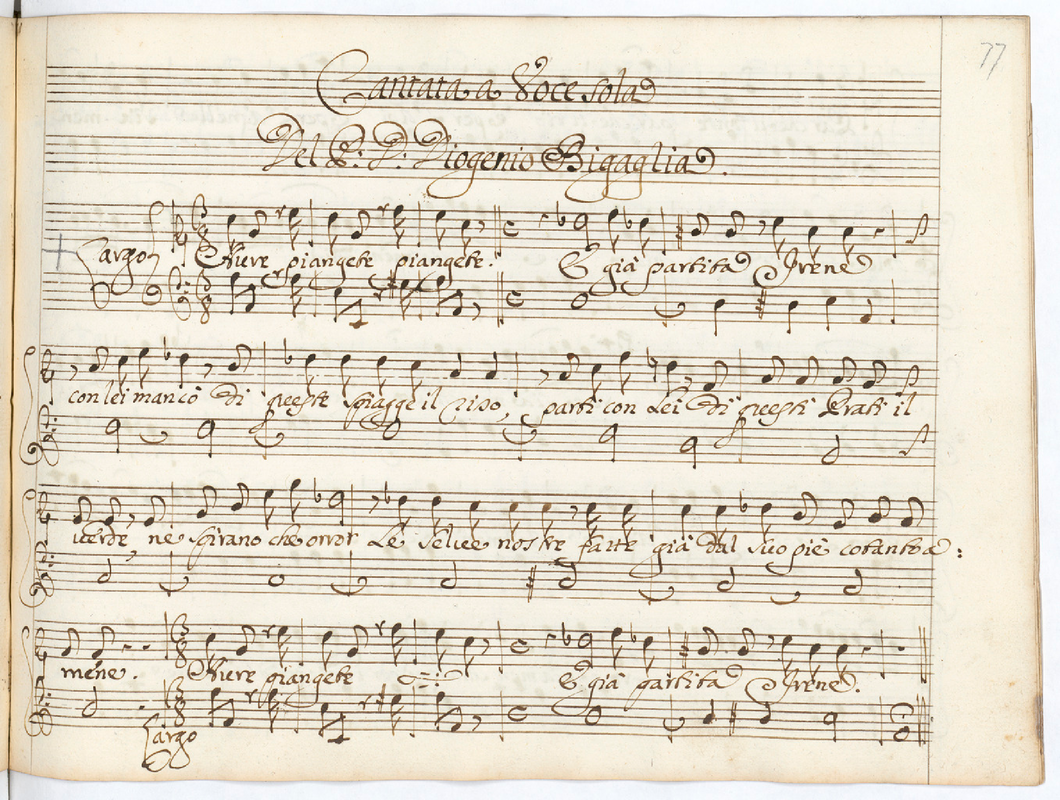 77
Cantata a Voce sola
Del P: D: Diogenio Bigaglia.
Largo Aure piangete piangete: È già partita Irene
con lei mancò di queste spiagge il riso, partì con Lei di questi Prati il
verde, ne spirano che orror Le selve nostre fatte già dal suo piè cotanto a:
mene. Aure piangete È già partita Irene.
Largo